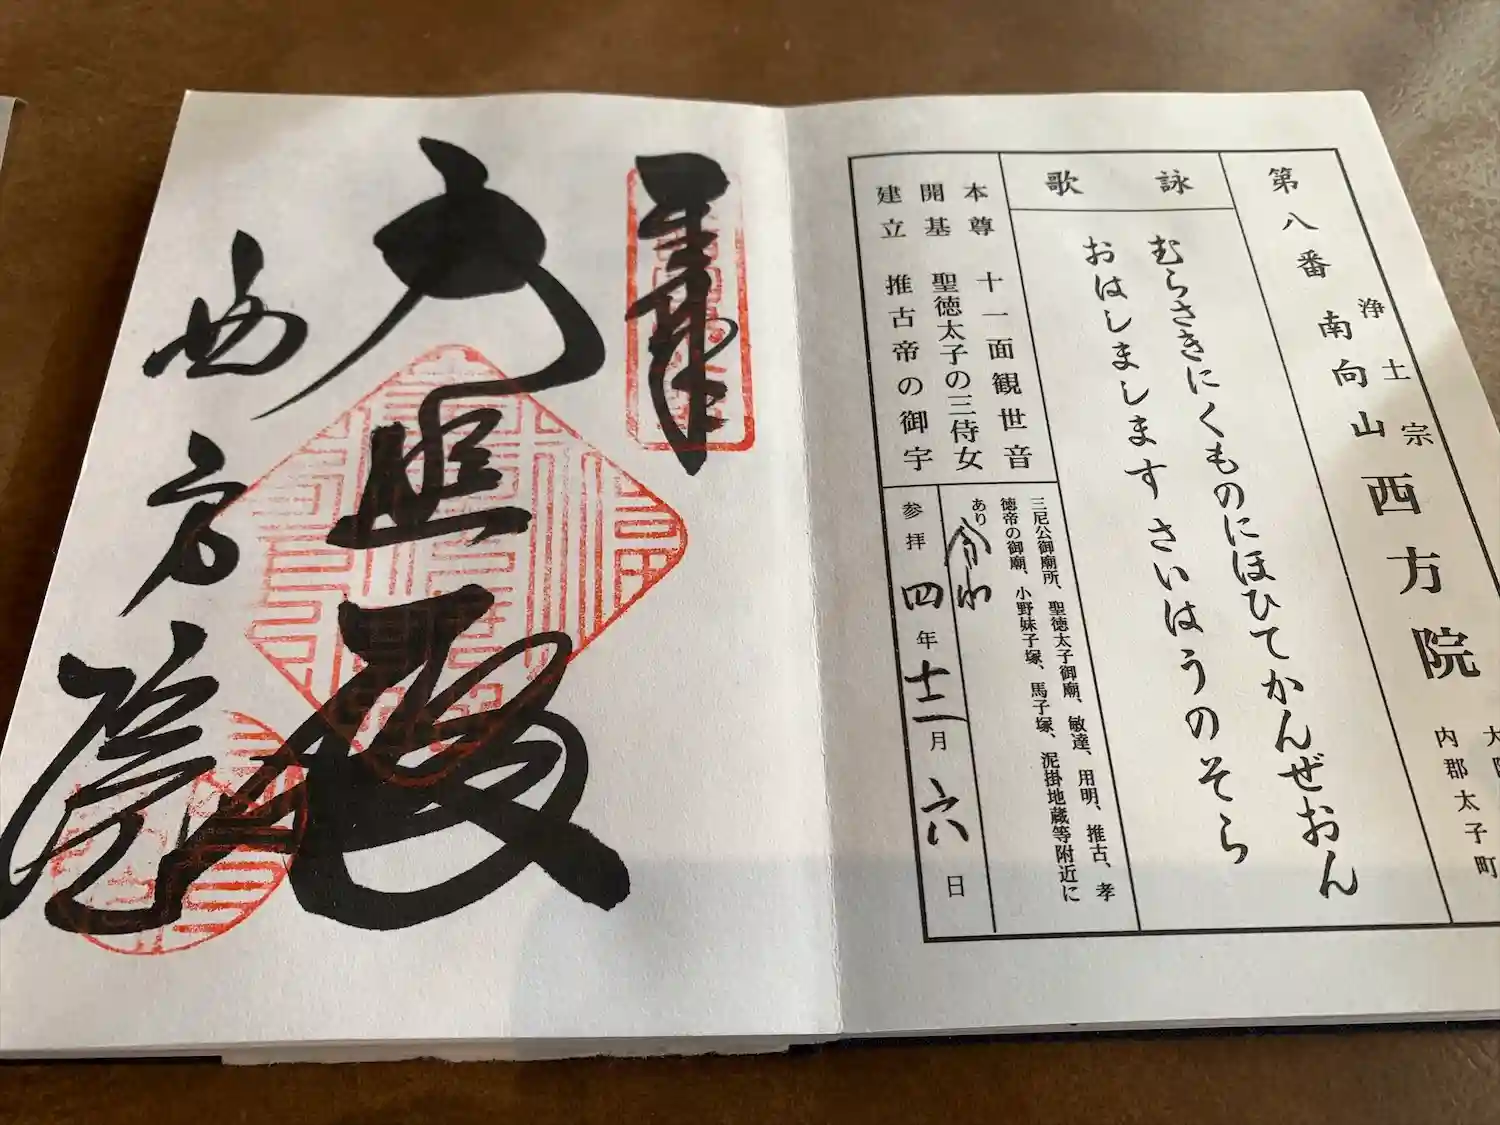 第八番 浄土宗 南向山 西方院
内郡太子町
詠歌
むらさきにくものにほひてかんぜおん
おはしましますさいはうのそら
本尊 十一面観世音
開基 聖徳太子の三侍女
建立 推古帝の御宇
三尼公御廟所、聖徳太子御廟、敏達、用明、推古、孝
徳帝の御廟、小野妹子塚、馬子塚、泥掛地蔵等附近に
あり
令和
参拝 四年十二月六日
奉拝
大悲殿
西方院